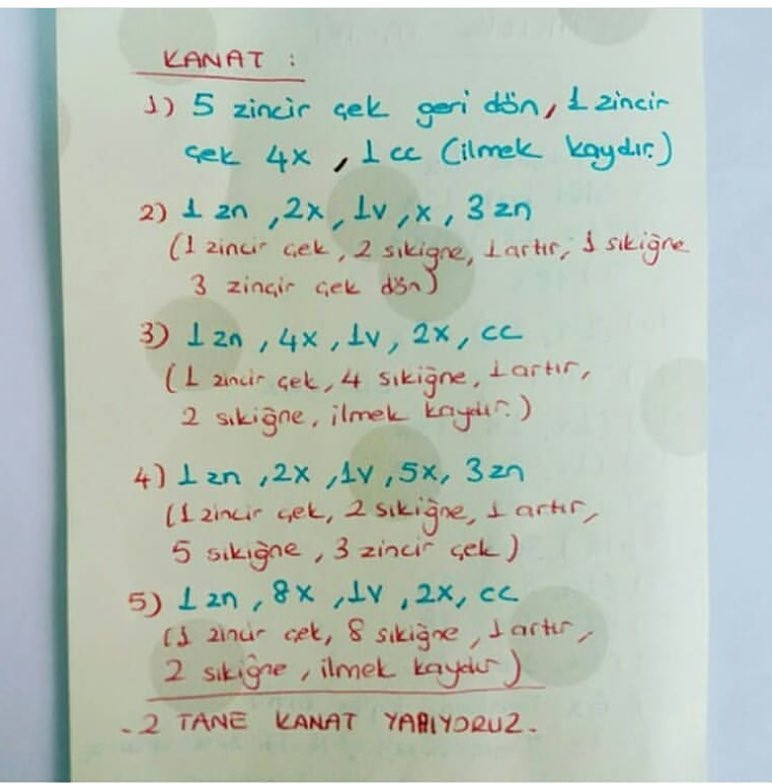 KANAT :
1) 5 zincir çek geri dön, 1 zincir
çek 4x , 1 cc (ilmek kaydır.)
2) 1 zn , 2x, 1v , x , 3 zn
(1 zincir çek, 2 sıkiğne, 1 artır, 1 sıkiğne
3 zincir çek dön)
3) 1 zn , 4x , 1v , 2x , cc
(1 zincir çek, 4 sıkiğne, 1 artır,
2 sıkiğne, ilmek kaydır.)
4) 1 zn , 2x , 1v , 5x, 3 zn
(1 zincir çek, 2 sıkiğne, 1 artır,
5 sıkiğne , 3 zincir çek)
5) 1 zn , 8x , 1v , 2x, cc
(1 zincir çek, 8 sıkiğne , 1 artır,
2 sıkiğne , ilmek kaydır)
- 2 TANE KANAT YAPIYORUZ.